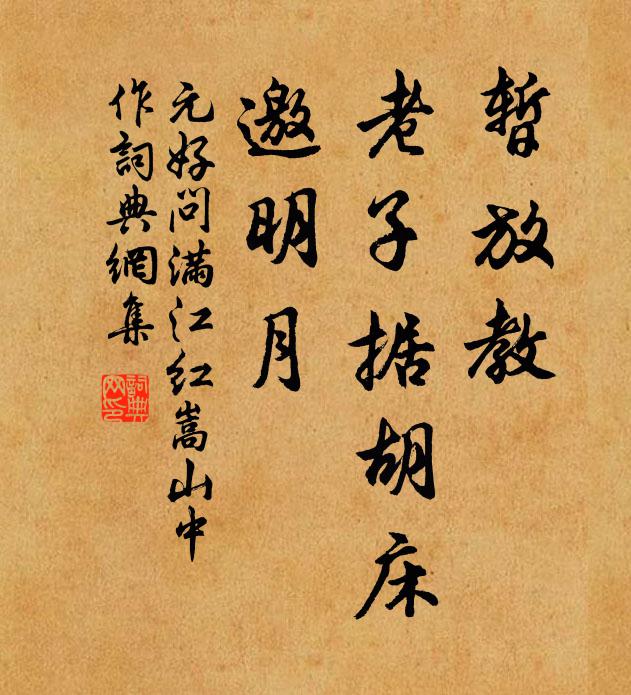 暫放教
老子据胡床
邀明月
元好问满江红嵩山中
作詞典網集
詞典网印